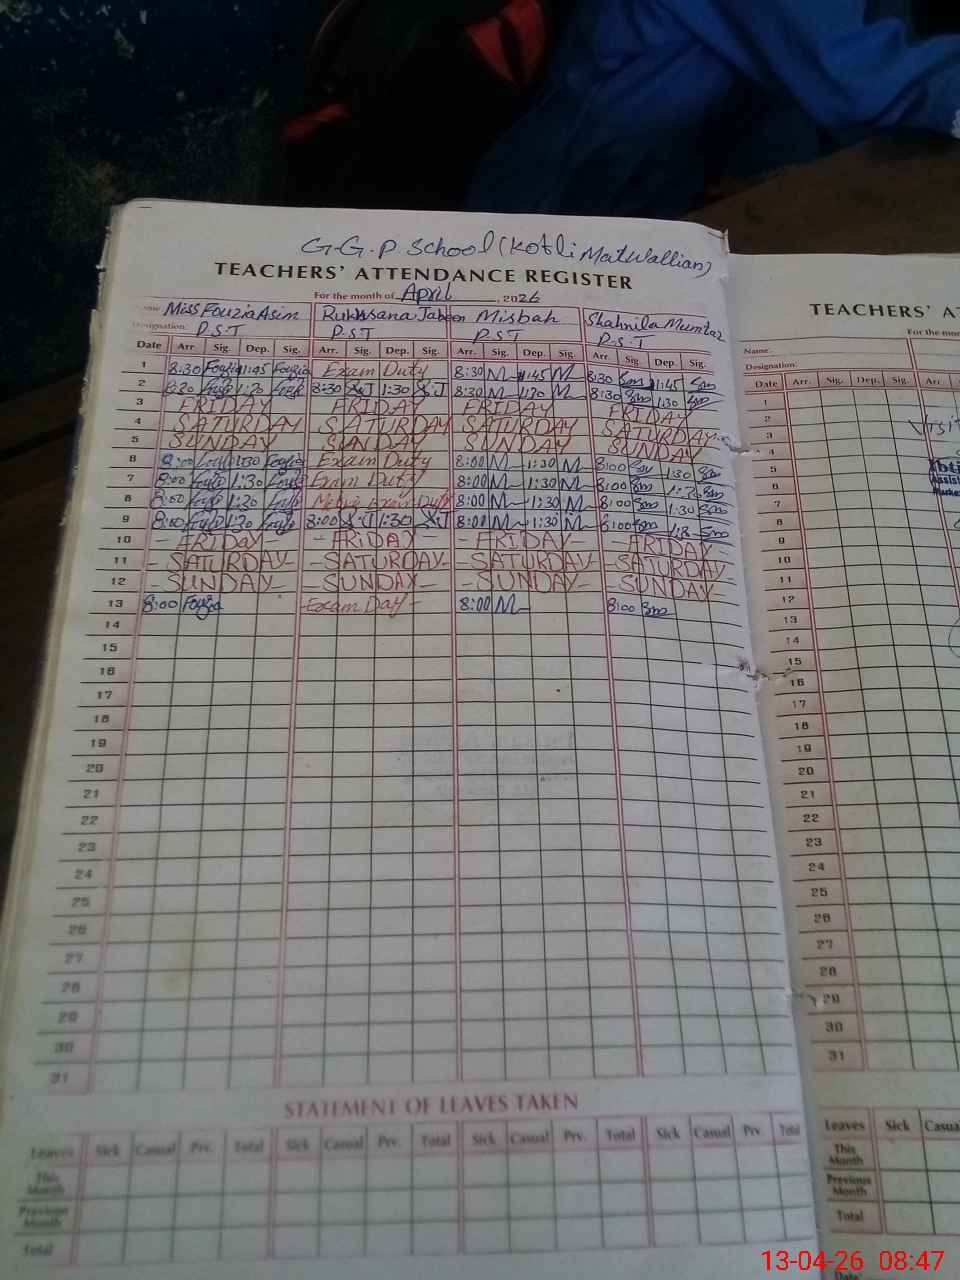 G.G.P. School (Kotli Matwallian)
TEACHERS' ATTENDANCE REGISTER
For the month of April, 2026
Name: Miss Fouzia Asim Rukhsana Jabeen Misbah Shahnila Mumtaz
Designation: P.S.T P.S.T P.S.T P.S.T
Date Arr. Sig. Dep. Sig. Arr. Sig. Dep. Sig. Arr. Sig. Dep. Sig. Arr. Sig. Dep. Sig.
1 8:30 Fouzia 11:45 Fouzia Exam Duty 8:30 M 11:45 M 8:30 11:45
2 8:30 1:30 8:30 1:30 8:30 M 1:30 M 8:30 1:30
3 FRIDAY FRIDAY FRIDAY FRIDAY
4 SATURDAY SATURDAY SATURDAY SATURDAY
5 SUNDAY SUNDAY SUNDAY SUNDAY
6 8:00 1:30 Fouzia Exam Duty 8:00 M 1:30 M 8:00 1:30
7 8:00 1:30 Exam Duty 8:00 M 1:30 M 8:00 1:30
8 8:00 1:30 Exam Duty 8:00 M 1:30 M 8:00 1:30
9 8:00 1:30 8:00 1:30 8:00 M 1:30 M 8:00
10 - FRIDAY - - FRIDAY - - FRIDAY - - FRIDAY -
11 - SATURDAY - - SATURDAY - - SATURDAY - - SATURDAY -
12 - SUNDAY - - SUNDAY - - SUNDAY - - SUNDAY -
13 8:00 Fouzia - Exam Day - 8:00 M 8:00
14
15
16
17
18
19
20
21
22
23
24
25
26
27
28
29
30
31
STATEMENT OF LEAVES TAKEN
Leaves Sick Casual Prv. Total Sick Casual Prv. Total Sick Casual Prv. Total Sick Casual Prv. Total
This Month
Previous Month
Total
TEACHERS' A
For the mon
Name:
Designation:
Date Arr. Sig. Dep. Sig. Arr
1
2
3
4
5
6
7
8
9
10
11
12
13
14
15
16
17
18
19
20
21
22
23
24
25
26
27
28
29
30
31
Leaves Sick Casua
This Month
Previous Month
Total
Date:
13-04-26 08:47